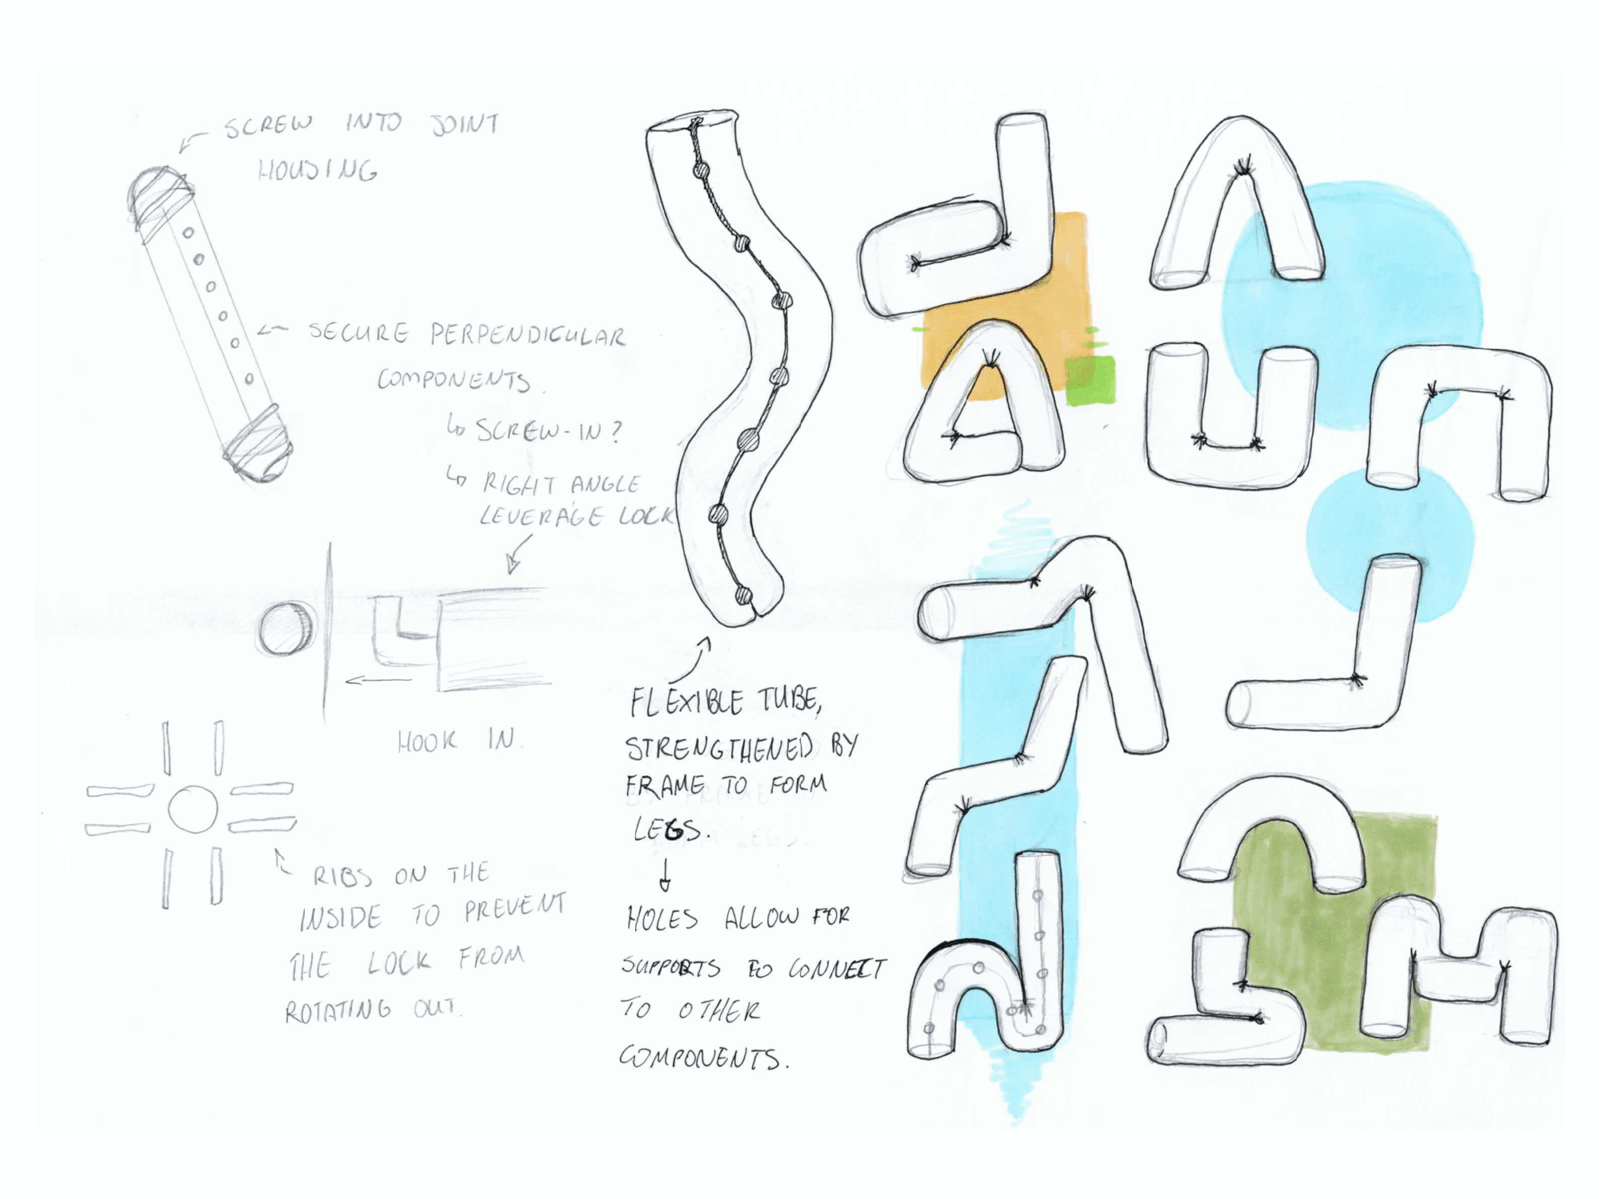 SCREW INTO JOINT
HOUSING
SECURE PERPENDICULAR
COMPONENTS.
↳ SCREW-IN?
↳ RIGHT ANGLE
LEVERAGE LOCK
HOOK IN.
RIBS ON THE
INSIDE TO PREVENT
THE LOCK FROM
ROTATING OUT.
FLEXIBLE TUBE,
STRENGTHENED BY
FRAME TO FORM
LEGS.
HOLES ALLOW FOR
SUPPORTS TO CONNECT
TO OTHER
COMPONENTS.